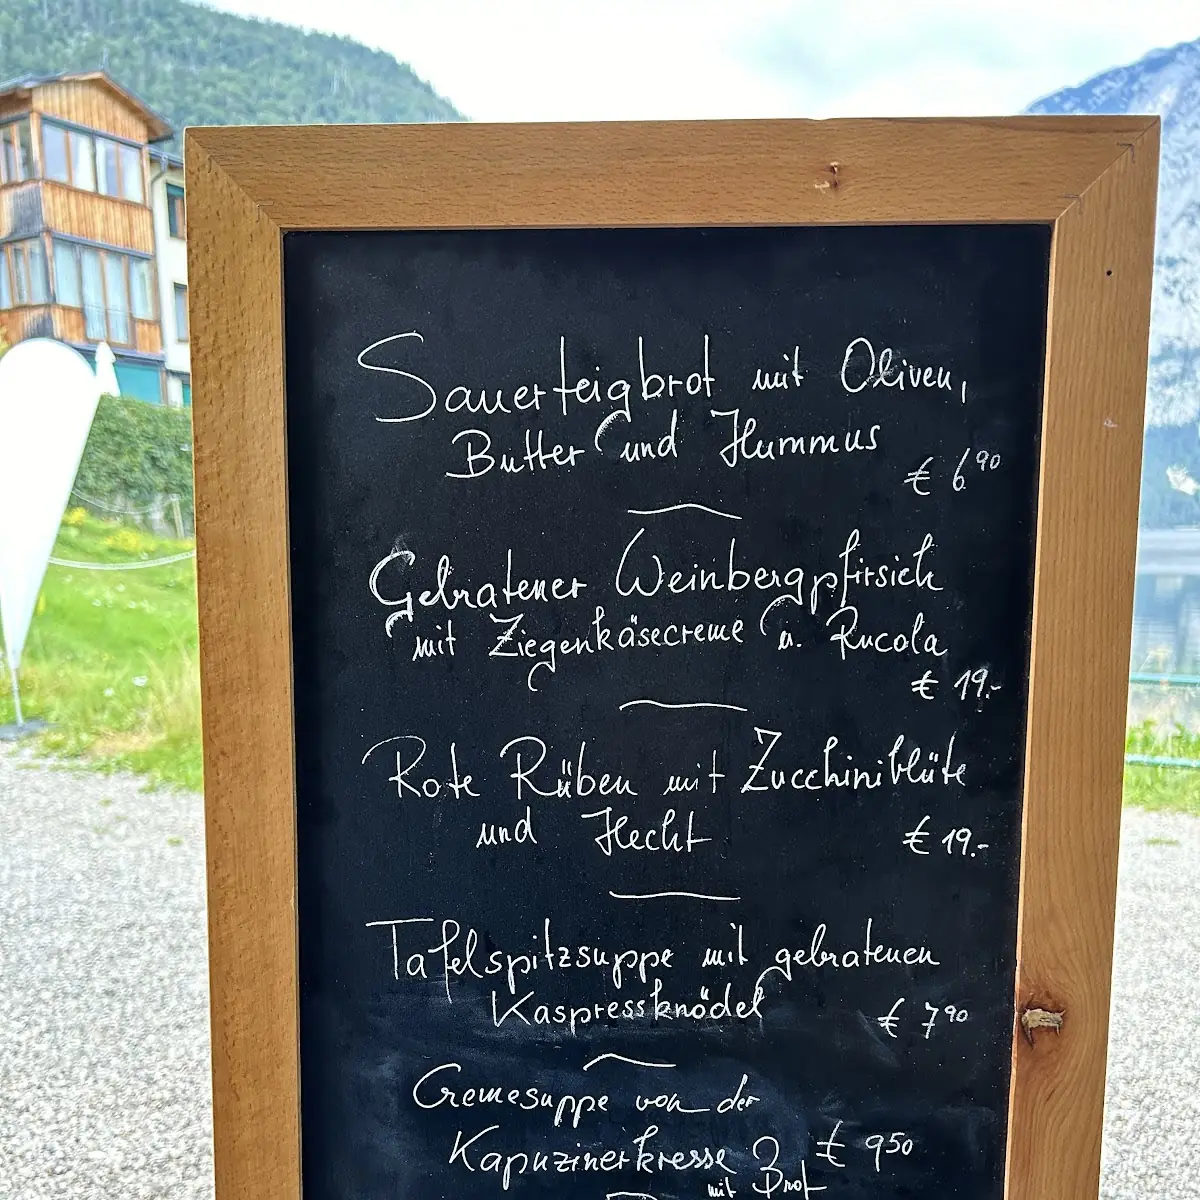 Sauerteigbrot mit Oliven,
Butter und Hummus
€ 6,90
Gebratener Weinbergpfirsich
mit Ziegenkäsecreme u. Rucola
€ 19.-
Rote Rüben mit Zucchiniblüte
und Hecht
€ 19.-
Tafelspitzsuppe mit gebratenen
Kaspressknödel
€ 7,90
Cremesuppe von der
Kapuzinerkresse € 9,50
mit Brot